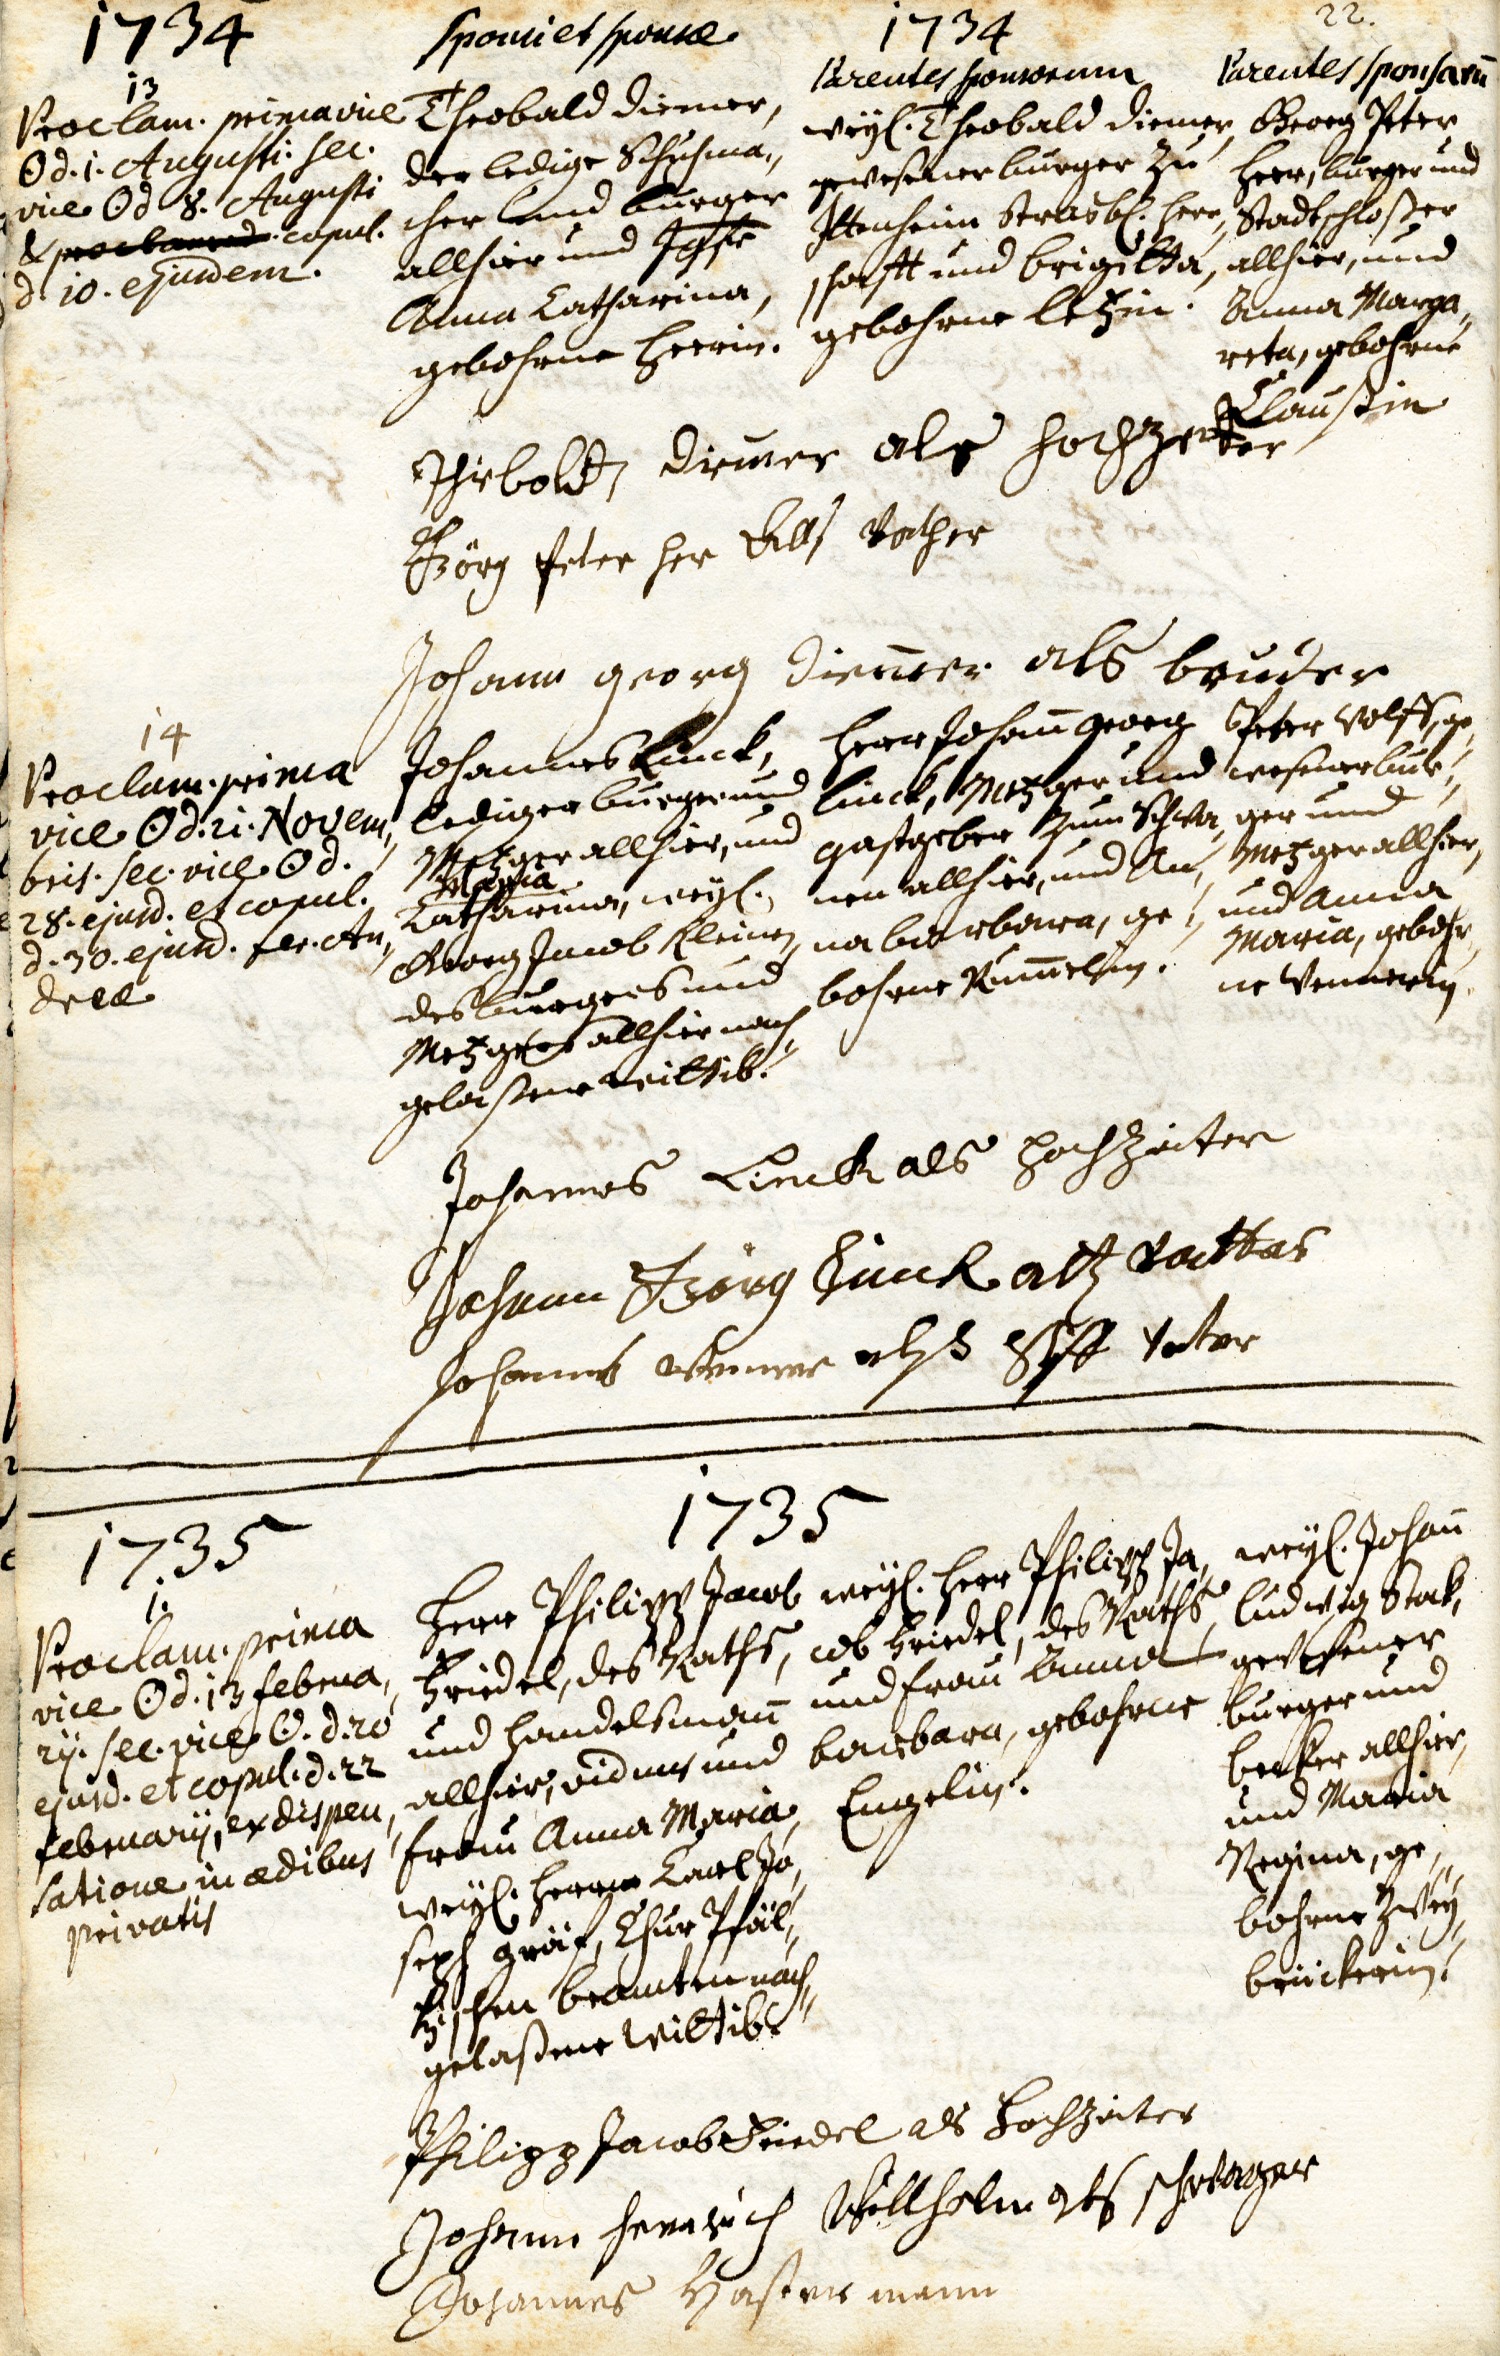 1734
Sponsi et sponsæ
1734
22.
Parentes sponsorum
Parentes sponsarũ
13
Proclam. prima vice
Θ d. 1. Augusti. sec.
vice Θ d 8. Augusti
& copul.
d. 10. ejusdem.
Theobald Diemer,
der ledige Schuhma,,
cher und burger
allhier und Jgfr
Anna Catharina,
gebohrne Heerin.
weyl. Theobald Diemer,
gewesener burger zu
Ittenheim Strasb. herr,,
schafft und brigitta,
gebohrne Letzin.
Georg Peter
Heer, burger und
Stadtschloßer
allhier, und
Anna Marga,,
reta, gebohrne
Claußin
Thiebold Diemer als hochzeiter
Görg Peter Her Alls Vather
Johann Georg Diemer als bruder
14
Proclam. prima
vice Θ d. 21. Novem,,
bris. sec. vice Θ d.
28. ejusd. et copul.
d. 30. ejusd. fer. An,,
dreæ
Johannes Linck,
lediger burger und
Metzger allhier, und
Maria
Catharina, weyl.
Georg Jacob Kleinen,
des burgers und
Metzgers allhier nach,,
gelaßene Wittib.
Herr Johañ Georg
Linck, Metzger und
gastgeber zum Schwa,,
nen allhier, und An,,
na barbara, ge,,
bohrne Kum̃elin.
Peter Wolff, ge,,
wesener bur,,
ger und
Metzger allhier,
und Anna
Maria, gebohr,,
ne Vennerin.
Johannes Linck als hochzeiter
Johann Görg Linck altz Vatter
Johannes Wenner alß Stiff Vater
1735
1735
1.
Proclam. prima
vice Θ d. 13 februa,,
rij. sec. vice Θ. d. 20
ejusd. et copul. d. 22
februarij, ex dispen,,
satione in ædibus
privatis
Herr Philipp Jacob
Friedel, des Raths,
und handelsmañ
allhier, viduus und
Frau Anna Maria,
weyl. Herrn Carl Jo,,
seph Gräf, Chur Pfäl,,
tzischen beamten nach,,
gelaßene Wittib.
weyl. Herr Philipp Ja,,
cob Friedel, des Raths
und Frau Anna
barbara, gebohrne
Engelin.
weyl. Johañ
Ludwig Stock,
gewesener
burger und
becker allhier,
und Maria
Regina, ge,,
bohrne Zwey,,
brückerin.
Philipp Jacob Friedel als Hochzeiter
Johann Henrich Willhelm als schwager
Johannes Hastermann